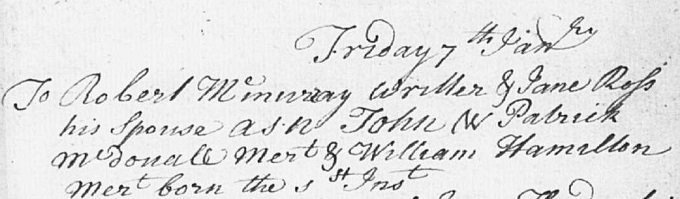 Friday 7th Janry
To Robert McMurray Writter & Jane Ross
his Spouse a S. n John W Patrick
McDouall Mert & William Hamilton
Mert born the 1st Inst